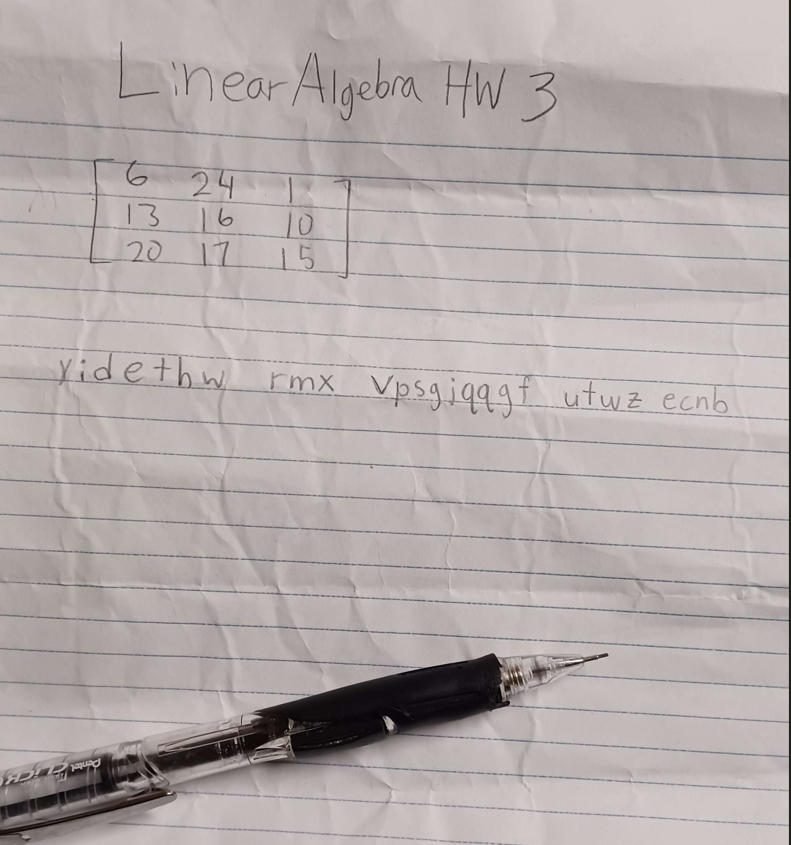 Linear Algebra HW 3
6 24 1
13 16 10
20 17 15
yidethw rmx vpsgiqqgf utwz ecnb
Pentel CLICK